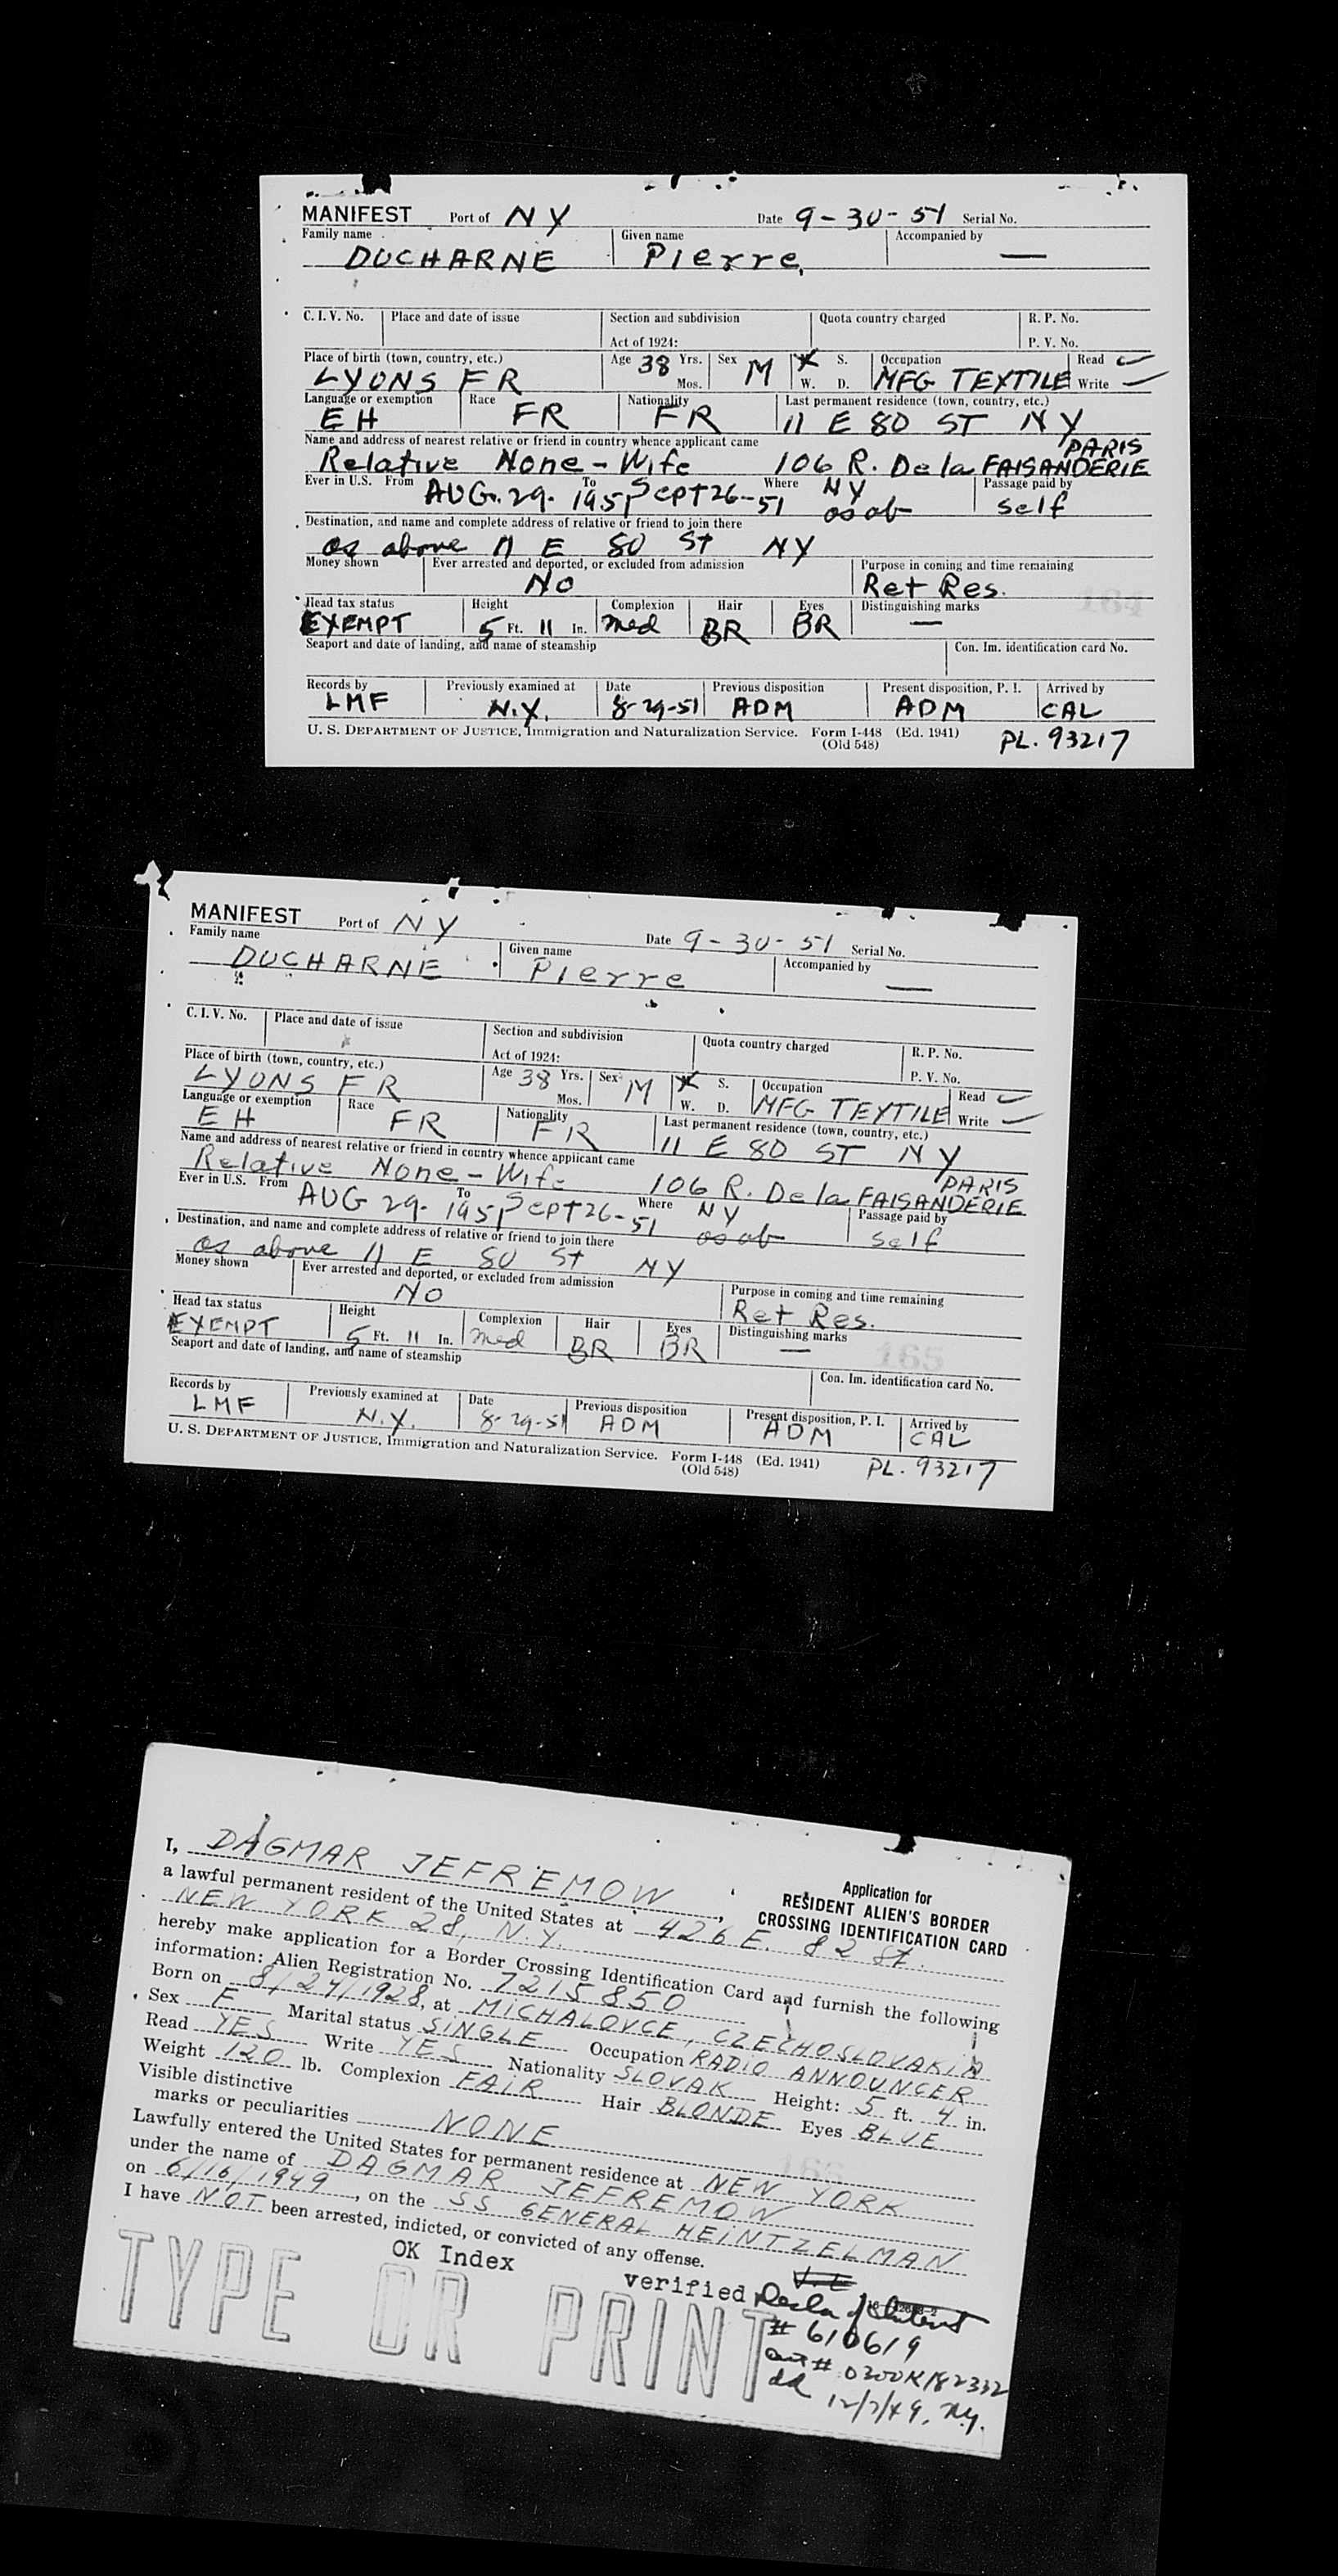 MANIFEST Port of NY Date 9-30-51 Serial No.
Family name Given name Accompanied by
DUCHARNE Pierre —
C. I. V. No. Place and date of issue Section and subdivision Quota country charged R. P. No.
Act of 1924: P. V. No.
Place of birth (town, country, etc.) Age 38 Yrs. Sex M X S. Occupation Read ✓
LYONS FR Mos. W. D. MFG TEXTILE Write ✓
Language or exemption Race Nationality Last permanent residence (town, country, etc.)
EH FR FR 11 E 80 ST NY
Name and address of nearest relative or friend in country whence applicant came PARIS
Relative None - Wife 106 R. De la FAISANDERIE
Ever in U.S. From AUG. 29. 1951 To Sept 26-51 Where NY Passage paid by
as ab self
Destination, and name and complete address of relative or friend to join there
as above 11 E 80 St NY
Money shown Ever arrested and deported, or excluded from admission Purpose in coming and time remaining
No Ret Res.
184
Head tax status Height Complexion Hair Eyes Distinguishing marks
EXEMPT 5 Ft. 11 In. med BR BR —
Seaport and date of landing, and name of steamship Con. Im. identification card No.
Records by Previously examined at Date Previous disposition Present disposition, P. I. Arrived by
LMF N.Y. 8-29-51 ADM ADM CAL
U. S. DEPARTMENT OF JUSTICE, Immigration and Naturalization Service. Form I-448 (Ed. 1941) PL. 93217
(Old 548)
MANIFEST Port of NY Date 9-30-51 Serial No.
Family name Given name Accompanied by
DUCHARNE Pierre —
C. I. V. No. Place and date of issue Section and subdivision Quota country charged R. P. No.
Act of 1924: P. V. No.
Place of birth (town, country, etc.) Age 38 Yrs. Sex M X S. Occupation Read ✓
LYONS FR Mos. W. D. MFG TEXTILE Write ✓
Language or exemption Race Nationality Last permanent residence (town, country, etc.)
EH FR FR 11 E 80 ST NY
Name and address of nearest relative or friend in country whence applicant came PARIS
Relative None - Wife 106 R. De la FAISANDERIE
Ever in U.S. From AUG 29. 1951 To Sept 26-51 Where NY Passage paid by
as ab self
Destination, and name and complete address of relative or friend to join there
as above 11 E 80 St NY
Money shown Ever arrested and deported, or excluded from admission Purpose in coming and time remaining
No Ret Res.
Head tax status Height Complexion Hair Eyes Distinguishing marks
EXEMPT 5 Ft. 11 In. med BR BR —
165
Seaport and date of landing, and name of steamship Con. Im. identification card No.
Records by Previously examined at Date Previous disposition Present disposition, P. I. Arrived by
LMF N.Y. 8-29-51 ADM ADM CAL
U. S. DEPARTMENT OF JUSTICE, Immigration and Naturalization Service. Form I-448 (Ed. 1941) PL. 93217
(Old 548)
Application for
RESIDENT ALIEN'S BORDER
CROSSING IDENTIFICATION CARD
I, DAGMAR JEFREMOW,
a lawful permanent resident of the United States at 426 E. 82 St.
NEW YORK 28, N.Y.
hereby make application for a Border Crossing Identification Card and furnish the following
information: Alien Registration No. 7215850
Born on 8/24/1928, at MICHALOVCE, CZECHOSLOVAKIA
Sex F Marital status SINGLE Occupation RADIO ANNOUNCER
Read YES Write YES Nationality SLOVAK Height: 5 ft. 4 in.
Weight 120 lb. Complexion FAIR Hair BLONDE Eyes BLUE
Visible distinctive
marks or peculiarities NONE
166
Lawfully entered the United States for permanent residence at NEW YORK
under the name of DAGMAR JEFREMOW
on 6/16/1949, on the SS GENERAL HEINTZELMAN
I have NOT been arrested, indicted, or convicted of any offense.
OK Index verified
Decla of Intent
# 610619
# 0300K182332
dd 12/7/49, N.Y.
TYPE OR PRINT